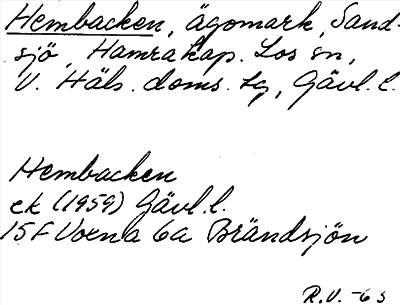 Hembacken, ägomark, Sand-
sjö, Hamra kap. Los sn,
V. Häls. doms. tg, Gävl. l.
Hembacken
ek (1959) Gävl. l.
15F Voxna 6a Brändsjön
R.V. -63